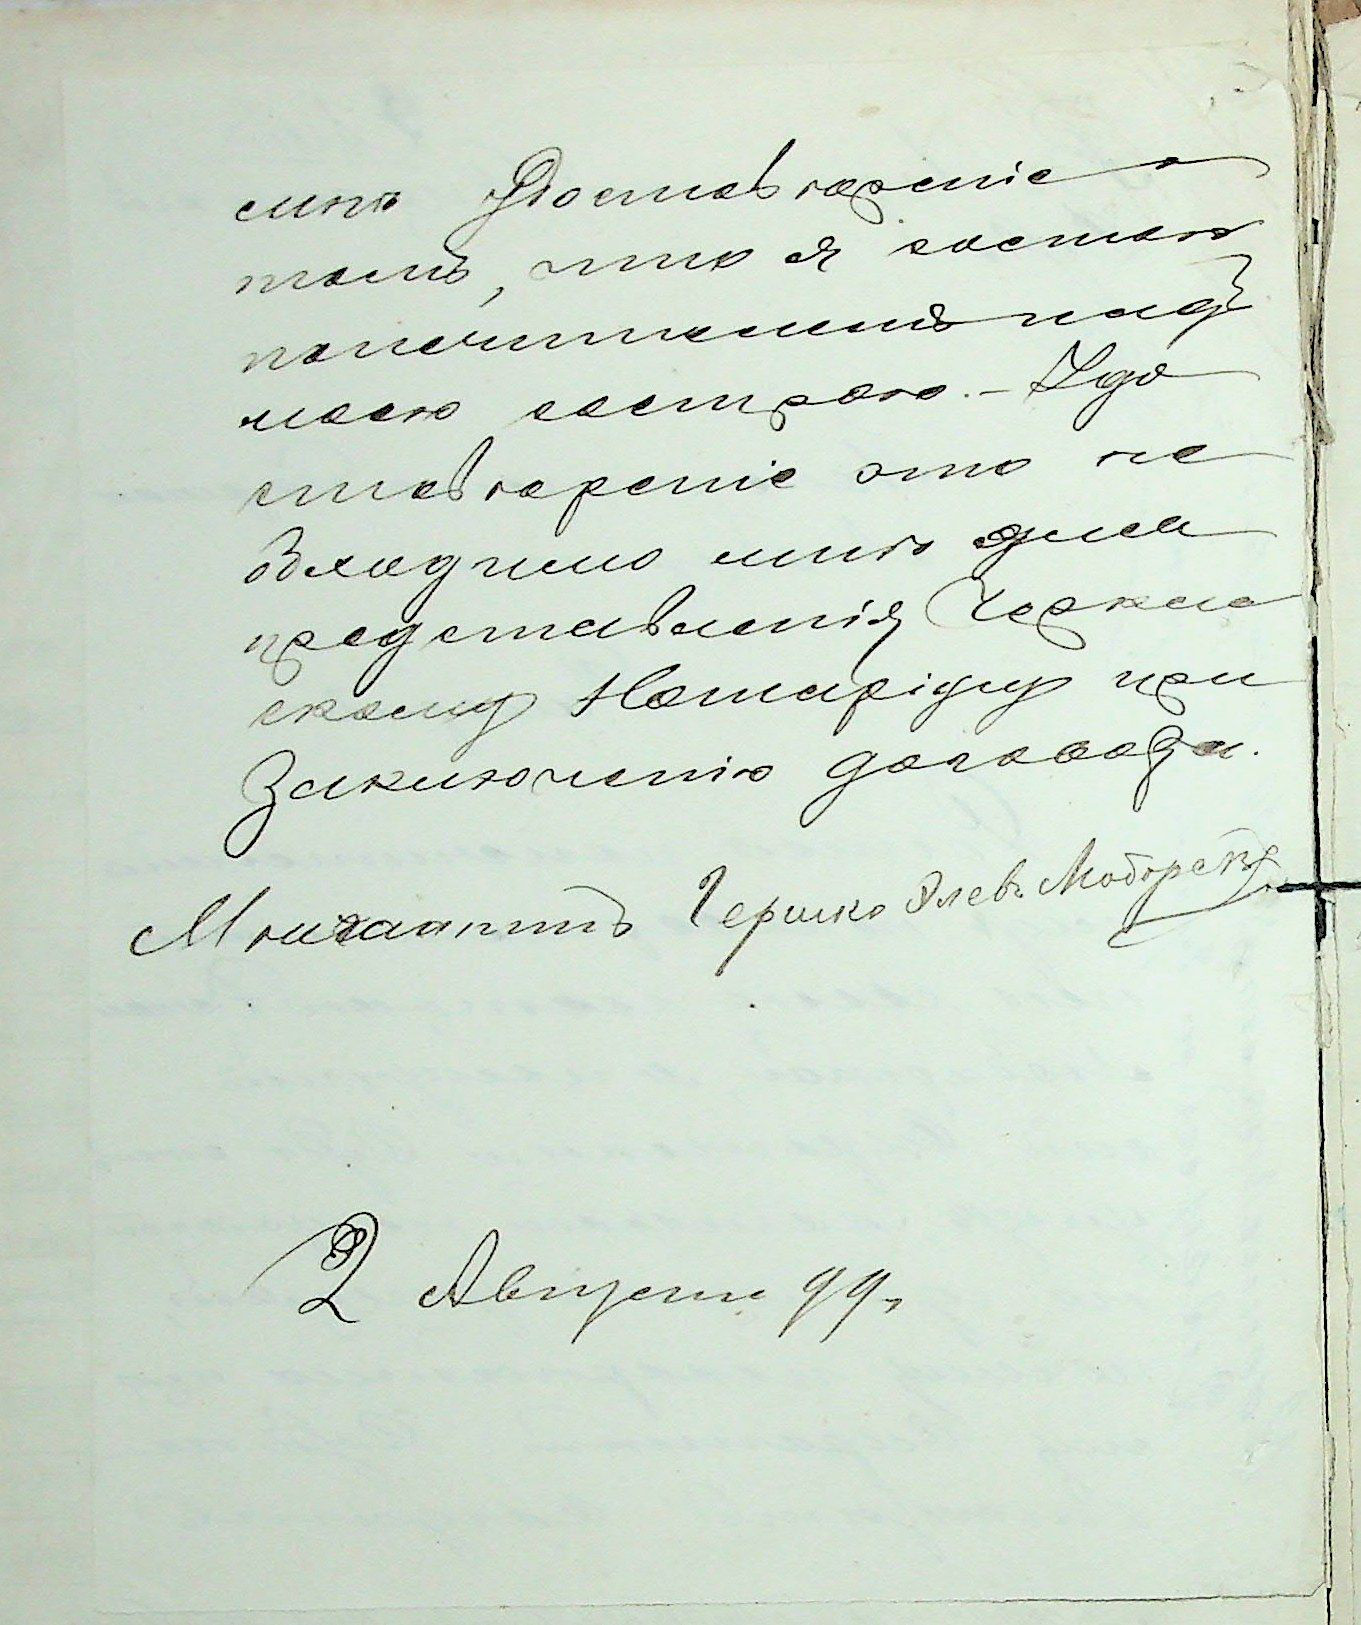 мнѣ Удостовѣреніе о
томъ, что я состою
попечителемъ надъ
моею сестрою. - Удо
стовѣреніе это не
обходимо мнѣ для
представленія Черкас
скому Нотаріусу при
Заключеніи договора.
Мещанинъ Гершко Элевъ
2 Августа 99 г.